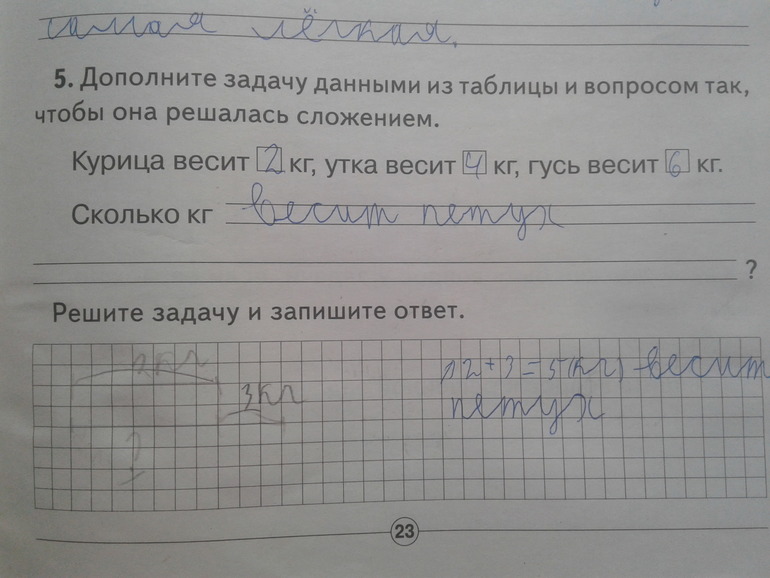 самая лёгкая.
5. Дополните задачу данными из таблицы и вопросом так,
чтобы она решалась сложением.
Курица весит 2 кг, утка весит 4 кг, гусь весит 6 кг.
Сколько кг весит петух
?
Решите задачу и запишите ответ.
2кг
1) 2+3=5(кг) - весит
3кг
петух
?
23